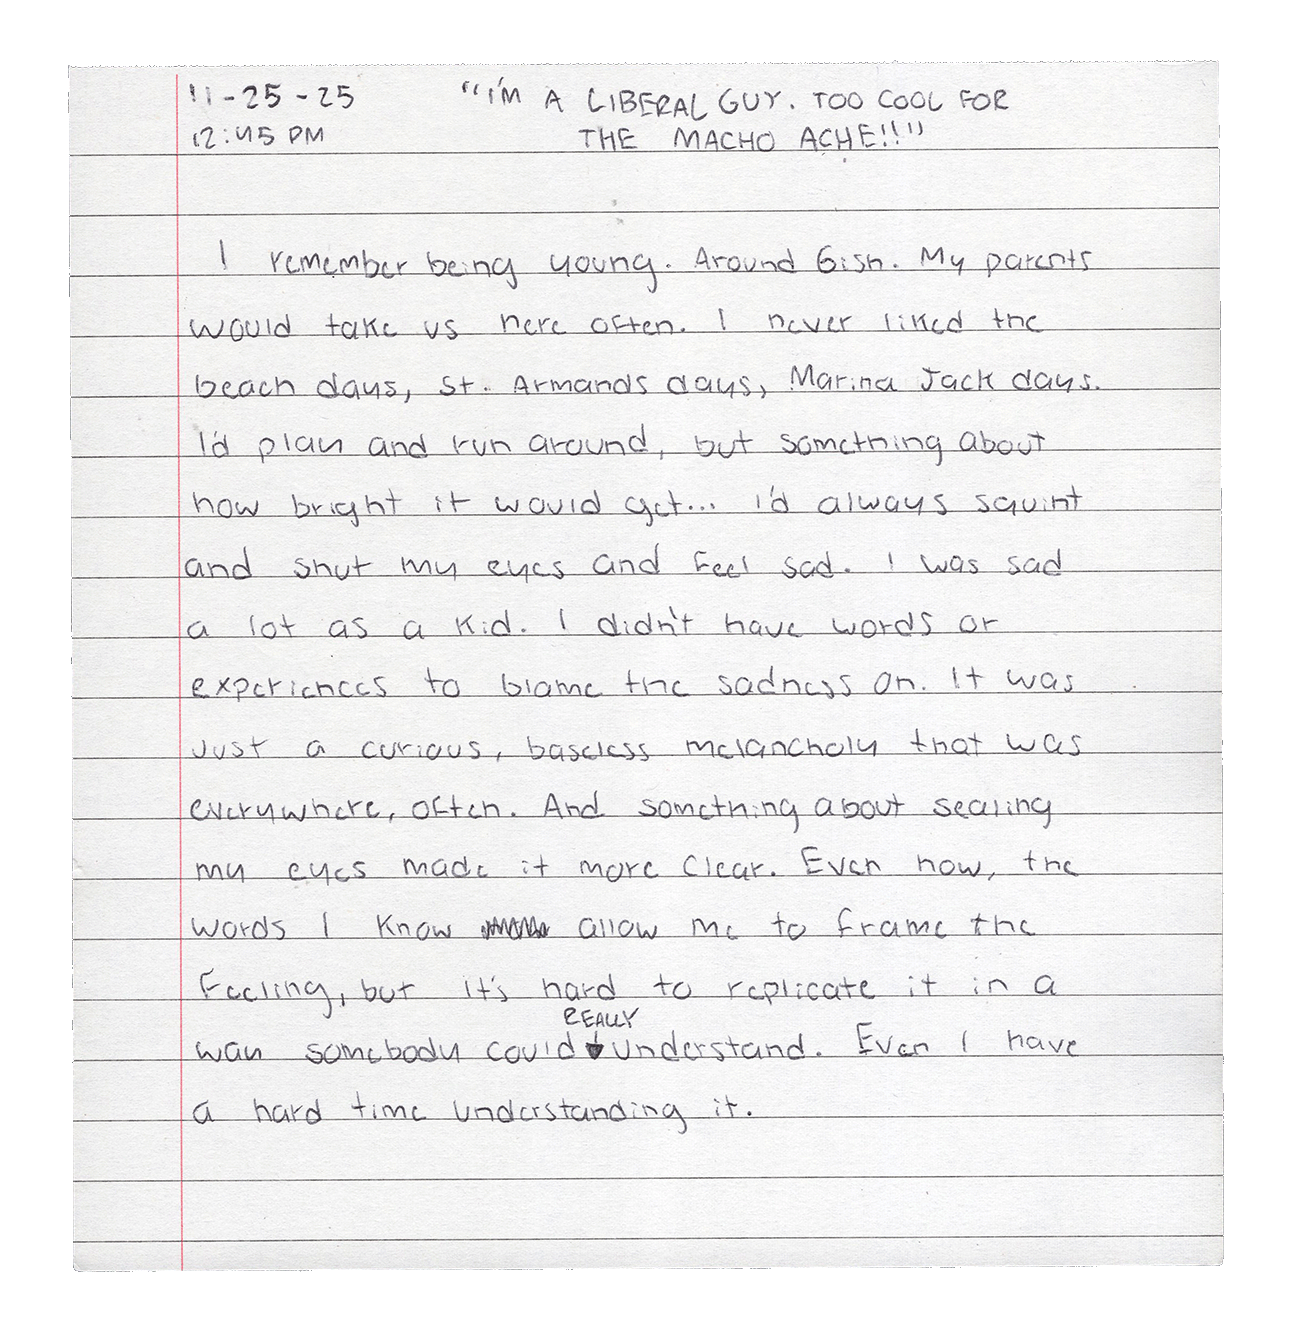 11-25-25
"I'M A LIBERAL GUY. TOO COOL FOR
12:45 PM
THE MACHO ACHE!!"
I remember being young. Around 6ish. My parents
would take us here often. I never liked the
beach days, St. Armands days, Marina Jack days.
I'd play and run around, but something about
how bright it would get... I'd always squint
and shut my eyes and feel sad. I was sad
a lot as a kid. I didn't have words or
experiences to blame the sadness on. It was
just a curious, baseless melancholy that was
everywhere, often. And something about sealing
my eyes made it more clear. Even now, the
words I know allow me to frame the
feeling, but it's hard to replicate it in a
REALLY
way somebody could understand. Even I have
a hard time understanding it.